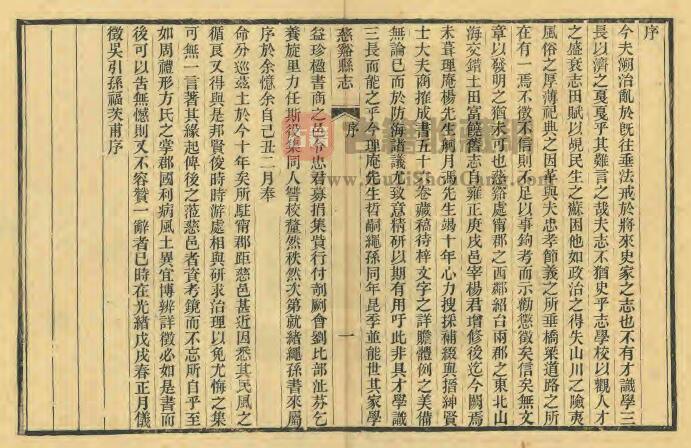 序
今夫溯治亂於旣往垂法戒於將來史家之志也不有才識學三
長以濟之戛戛乎其難言之哉夫志不猶史乎志學校以觀人才
之盛衰志田賦以覘民生之蘇困他如政治之得失山川之險夷
風俗之厚薄祀典之因革與夫忠孝節義之所垂橋梁道路之所
在有一焉不徵不信則不足以事鉤考而示勸懲徵矣信矣無文
章以發明之猶未可也慈谿處甯郡之西鄰紹台兩郡之東北山
海交錯土田富饒舊志自雍正庚戌邑宰楊君增修後迄今闕焉
未葺理庵楊先生艸月馮先生竭十年心力搜採補綴與搢紳賢
士大夫商搉成書五十 卷藏稿待梓文字之詳贍體例之美備
無論已而於防海諸議尤致意精研以期有用吁此非具才學識
三長而能之乎今理庵先生哲嗣繩孫同年昆季並能世其家學
慈谿縣志
序
一
益珍楹書商之邑 忠君募捐集貲行付剞劂會劉比部 芬乞
養旋里力任斯役集同人讐校釐然秩然次第就緒繩孫書來屬
序於余憶余自己丑二月奉
命分巡茲土於今十年矣所駐甯郡距慈邑甚近因悉其民風之
循良又得與是邦賢俊時時游處相與硏求治理以免尤悔之集
可無一言著其緣起俾後之蒞慈邑者資考鏡而不忘所自乎至
如周禮形方氏之掌郡國利病風土異宜博辨詳徵必如是書而
後可以吿無憾則又不容贊一辭者已時在光緖戊戌春正月儀
徵吳引孫福茨甫序
www.GuJiShouCang.com